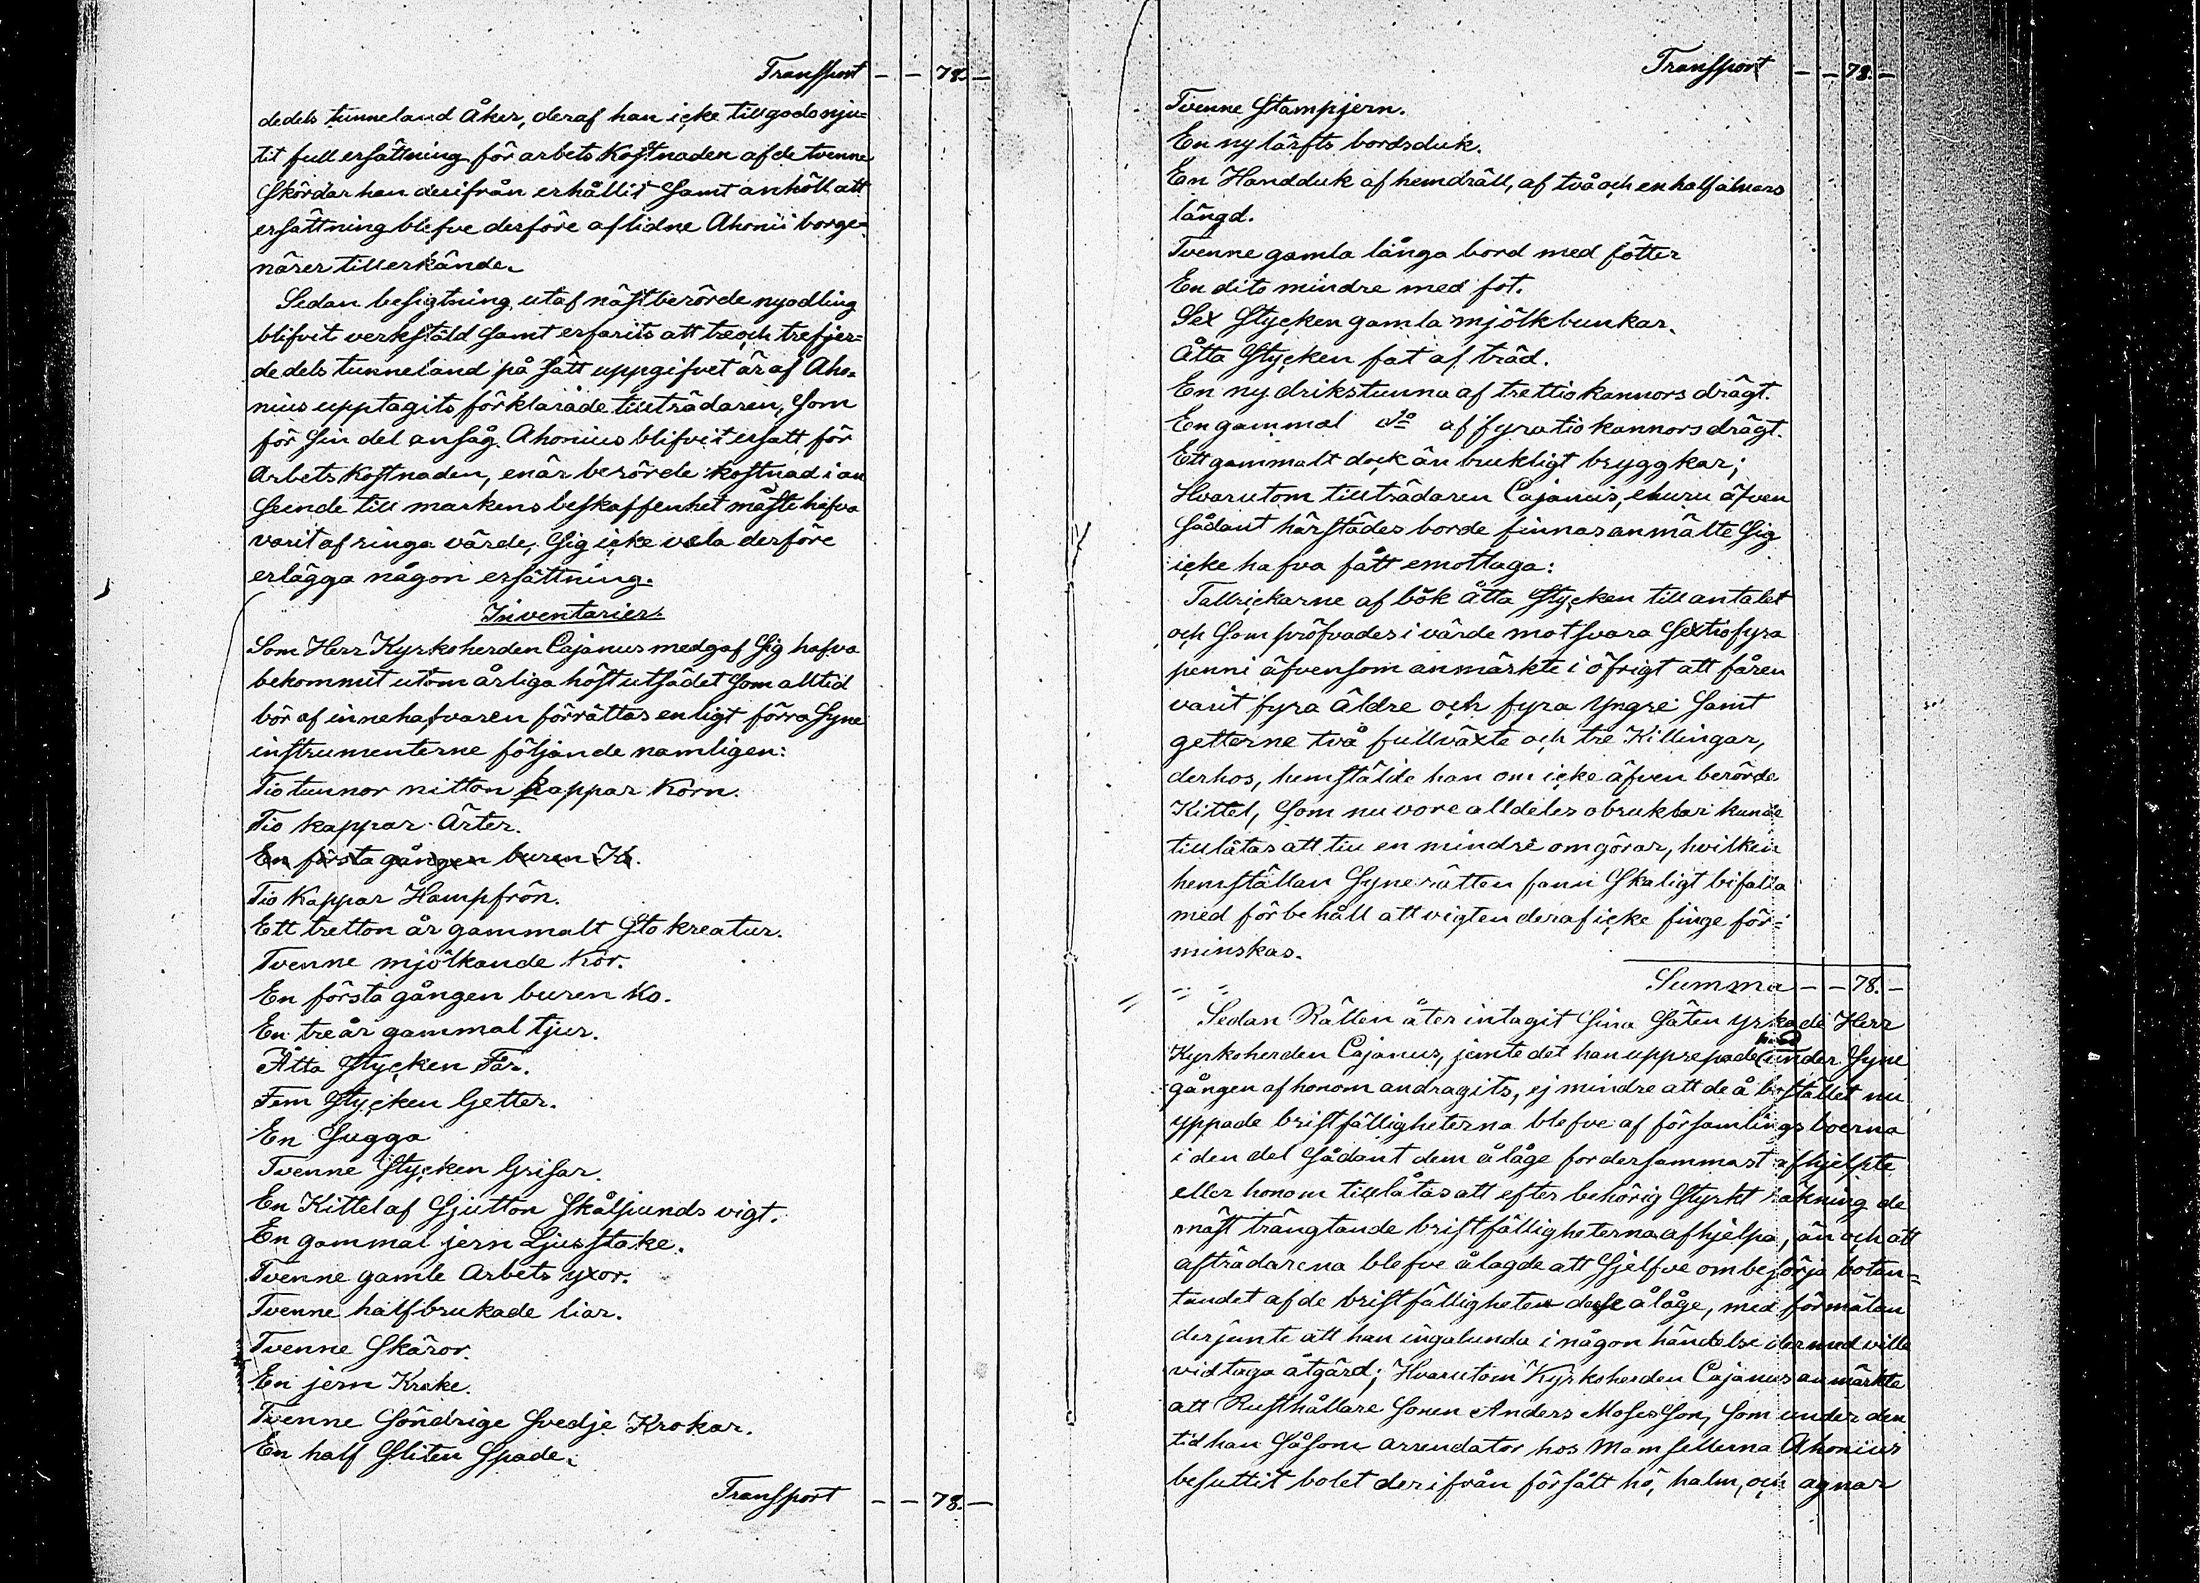 Transport - - 78. -
dedels tunneland Åker, deraf han icke tillgodo nju=
tit full ersättning för arbets Kostnaden af de tvenne
Skördar han derifrån erhållit Samt anhöll att
ersättning blefve derföre aflidne Ahonii borge=
närer tillerkände.
Sedan besigtning utaf näst berörde nyodling
blifvit verkstäld Samt erfarits att tre och trefjer=
dedels tunneland på Sätt uppgifvet är af Aho=
nius upptagits förklarade tillträdaren, Som
för Sin del ansåg Ahonius blifvit ersatt för
Arbets Kostnaden, enär berörde kostnad i an
Seende till markens beskaffenhet måste hafva
varit af ringa värde, Sig icke vela derföre
erlägga någon ersättning.
Inventarier.
Som Herr Kyrkoherden Cajanus medgaf Sig hafva
bekommit utom årliga höstutsädet Som alltid
bör af innehafvaren förrättas enligt förra Syne
instrumenterne följande namligen:
Tio tunnor nitton kappar Korn.
Tio kappar Ärter.
En första gången buren Ko.
Tio Kappar Hampfrön.
Ett tretton år gammalt Sto kreatur.
Tvenne mjölkande Kor.
En första gången buren Ko.
En tre år gammal tjur.
Åtta Stycken Får.
Fem Stycken Getter.
En Sugga
Tvenne Stycken Grisar.
En Kittel af Sjutton Skålpunds vigt.
En gammal jern Ljusstake.
Tvenne gamle Arbets yxor.
Tvenne half brukade liar.
Tvenne Skäror.
En jern Krake.
Tvenne Söndrige Svedje Krokar.
En half Sliten Spade.
Transport - - 78. -
Transport - - 78. -
Tvenne Stampjern.
En ny lärfts bordsduk.
En Handduk af hemdräll, af två och en half alnars
längd.
Tvenne gamla långa bord med fötter
En dito mindre med fot.
Sex Stycken gamla mjölkbunkar.
Åtta Stycken fat af träd.
En ny drikstunna af trettio kannors drägt.
En gammal do af fyratio kannors drägt.
Ett gammalt dock än brukligt bryggkar;
Hvarutom tillträdaren Cajanus, ehuru äfven
Sådant härstädes borde finnas anmälte Sig
icke hafva fått emottaga:
Tallrickarne af bök Åtta Stycken till antalet
och Som pröfvades i värde motsvara Sextiofyra
penni äfvensom anmärkte i öfrigt att fåren
varit fyra Äldre och fyra Yngre Samt
getterne två fullväxte och tre Killingar,
derhos, hemstälde han om icke äfven berörde
Kittel, Som nu vore alldeles obrukbar kunde
tillåtas att till en mindre omgöras, hvilken
hemställan Synerätten fann Skäligt bifalla
med förbehåll att vigten deraf icke finge för=
minskas.
Summa - - 78. -
Sedan Rätten åter intagit Sina Säten yrkade Herr
Kyrkoherden Cajanus, jemte det han upprepade hvad under Syne
gången af honom andragits, ej mindre att de å bostället nu
yppade bristfälligheterna blefve af församlingsboerna
i den del Sådant dem ålåge fordersammast afhjelpte
eller honom tillåtas att efter behörig Styrkt räkning de
mäst trängtande bristfälligheterna afhjelpa, än och att
afträdarena blefve ålagde att Sjelfve ombesörja botan=
tandet af de bristfälligheter desse ålåge, med förmälan
derjemte att han ingalunda i någon händelse dermed ville
vidtaga åtgärd; Hvarutom Kyrkoherden Cajanus anmärkte
att Rusthållare Sonen Anders MosesSon, Som under den
tid han Såsom arrendator hos Mamsellerna Ahonius
besuttit bolet derifrån försålt hö, halm, och agnar